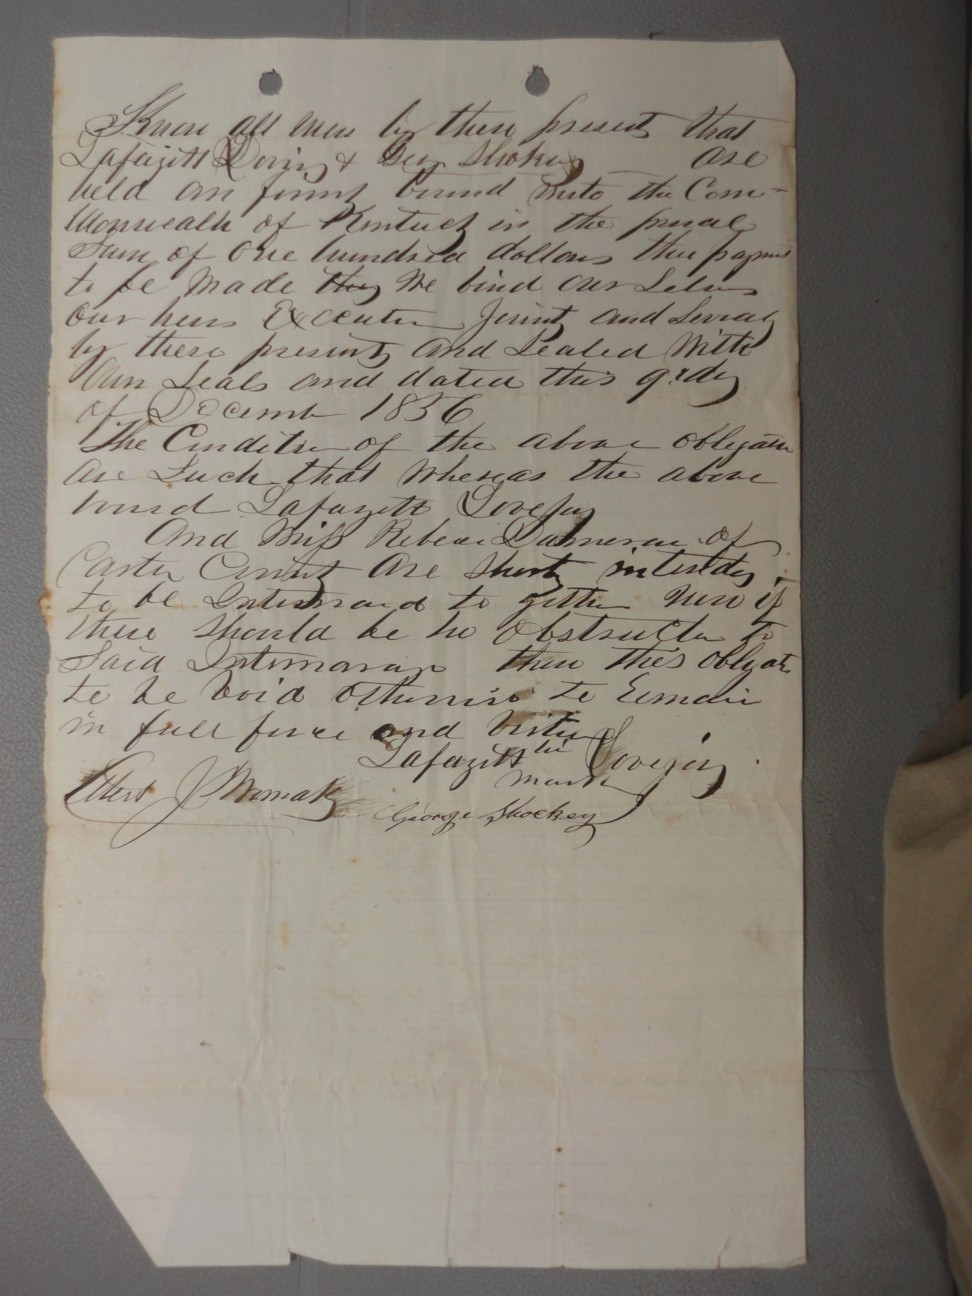 Know all men by these present that
Lafazett Lovin & Geo Shokey are
held an firmly bound unto the Com-
monwealh of Kentucky in the penal
Sum of One hundred dollars the paymt
to be Made they We bind our Selves
our heirs Executer Jointly and Sevraly
by these presents and Sealed With
Our Seals and dated this 9.rdy
of Decemb 1856
The Conditon of the above obligation
are Such that Whereas the above
bound Lafazett Lovejoy
And Miss Rebeca of
Carter County Are Shortly intending
to be Intermard to gether Now if
there Should be no Obstructon to
Said Intermarage then this obligat
to be void otherwise to Remain
in full force and virtue
Lafazett his Lovejoy
mark
Attest J Womak
George Shockey